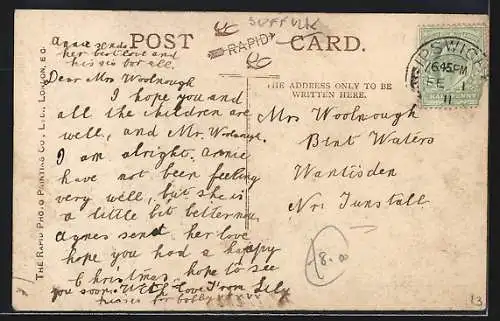 SUFFOLK
Annie sends
her best love and
kisses for all.
POST CARD.
RAPID
IPSWICH
6.45 PM
FE 1
11
THE ADDRESS ONLY TO BE
WRITTEN HERE.
Dear Mrs Woolnough
I hope you and
all the children are
well, and Mr. Woolnough.
I am alright. Annie
have not been feeling
very well, but she is
a little bit better now,
Agnes send her love
hope you had a happy
Christmas, hope to see
you soon. With love from Lily
kisses for bobby xxxxxx
Mrs Woolnough
Bent Waters
Wantisden
Nr. Tunstall
18.00
13
THE RAPID PHOTO PRINTING CO., LTD., LONDON, E.C.